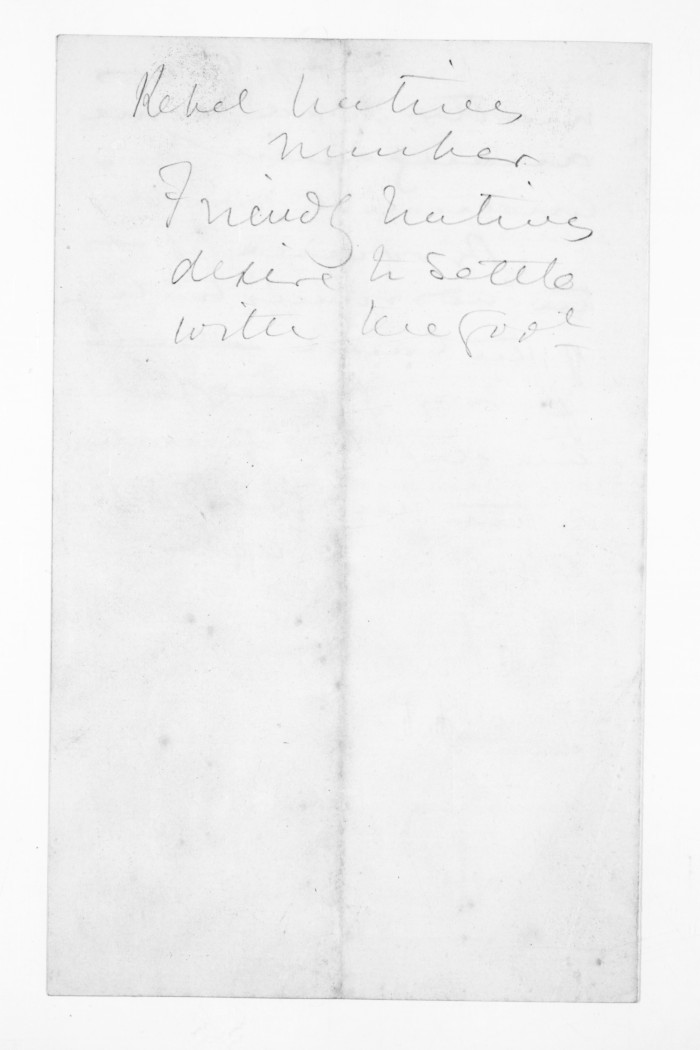 Rebel Natives
number
Friendly Natives
desire to settle
with the Govt